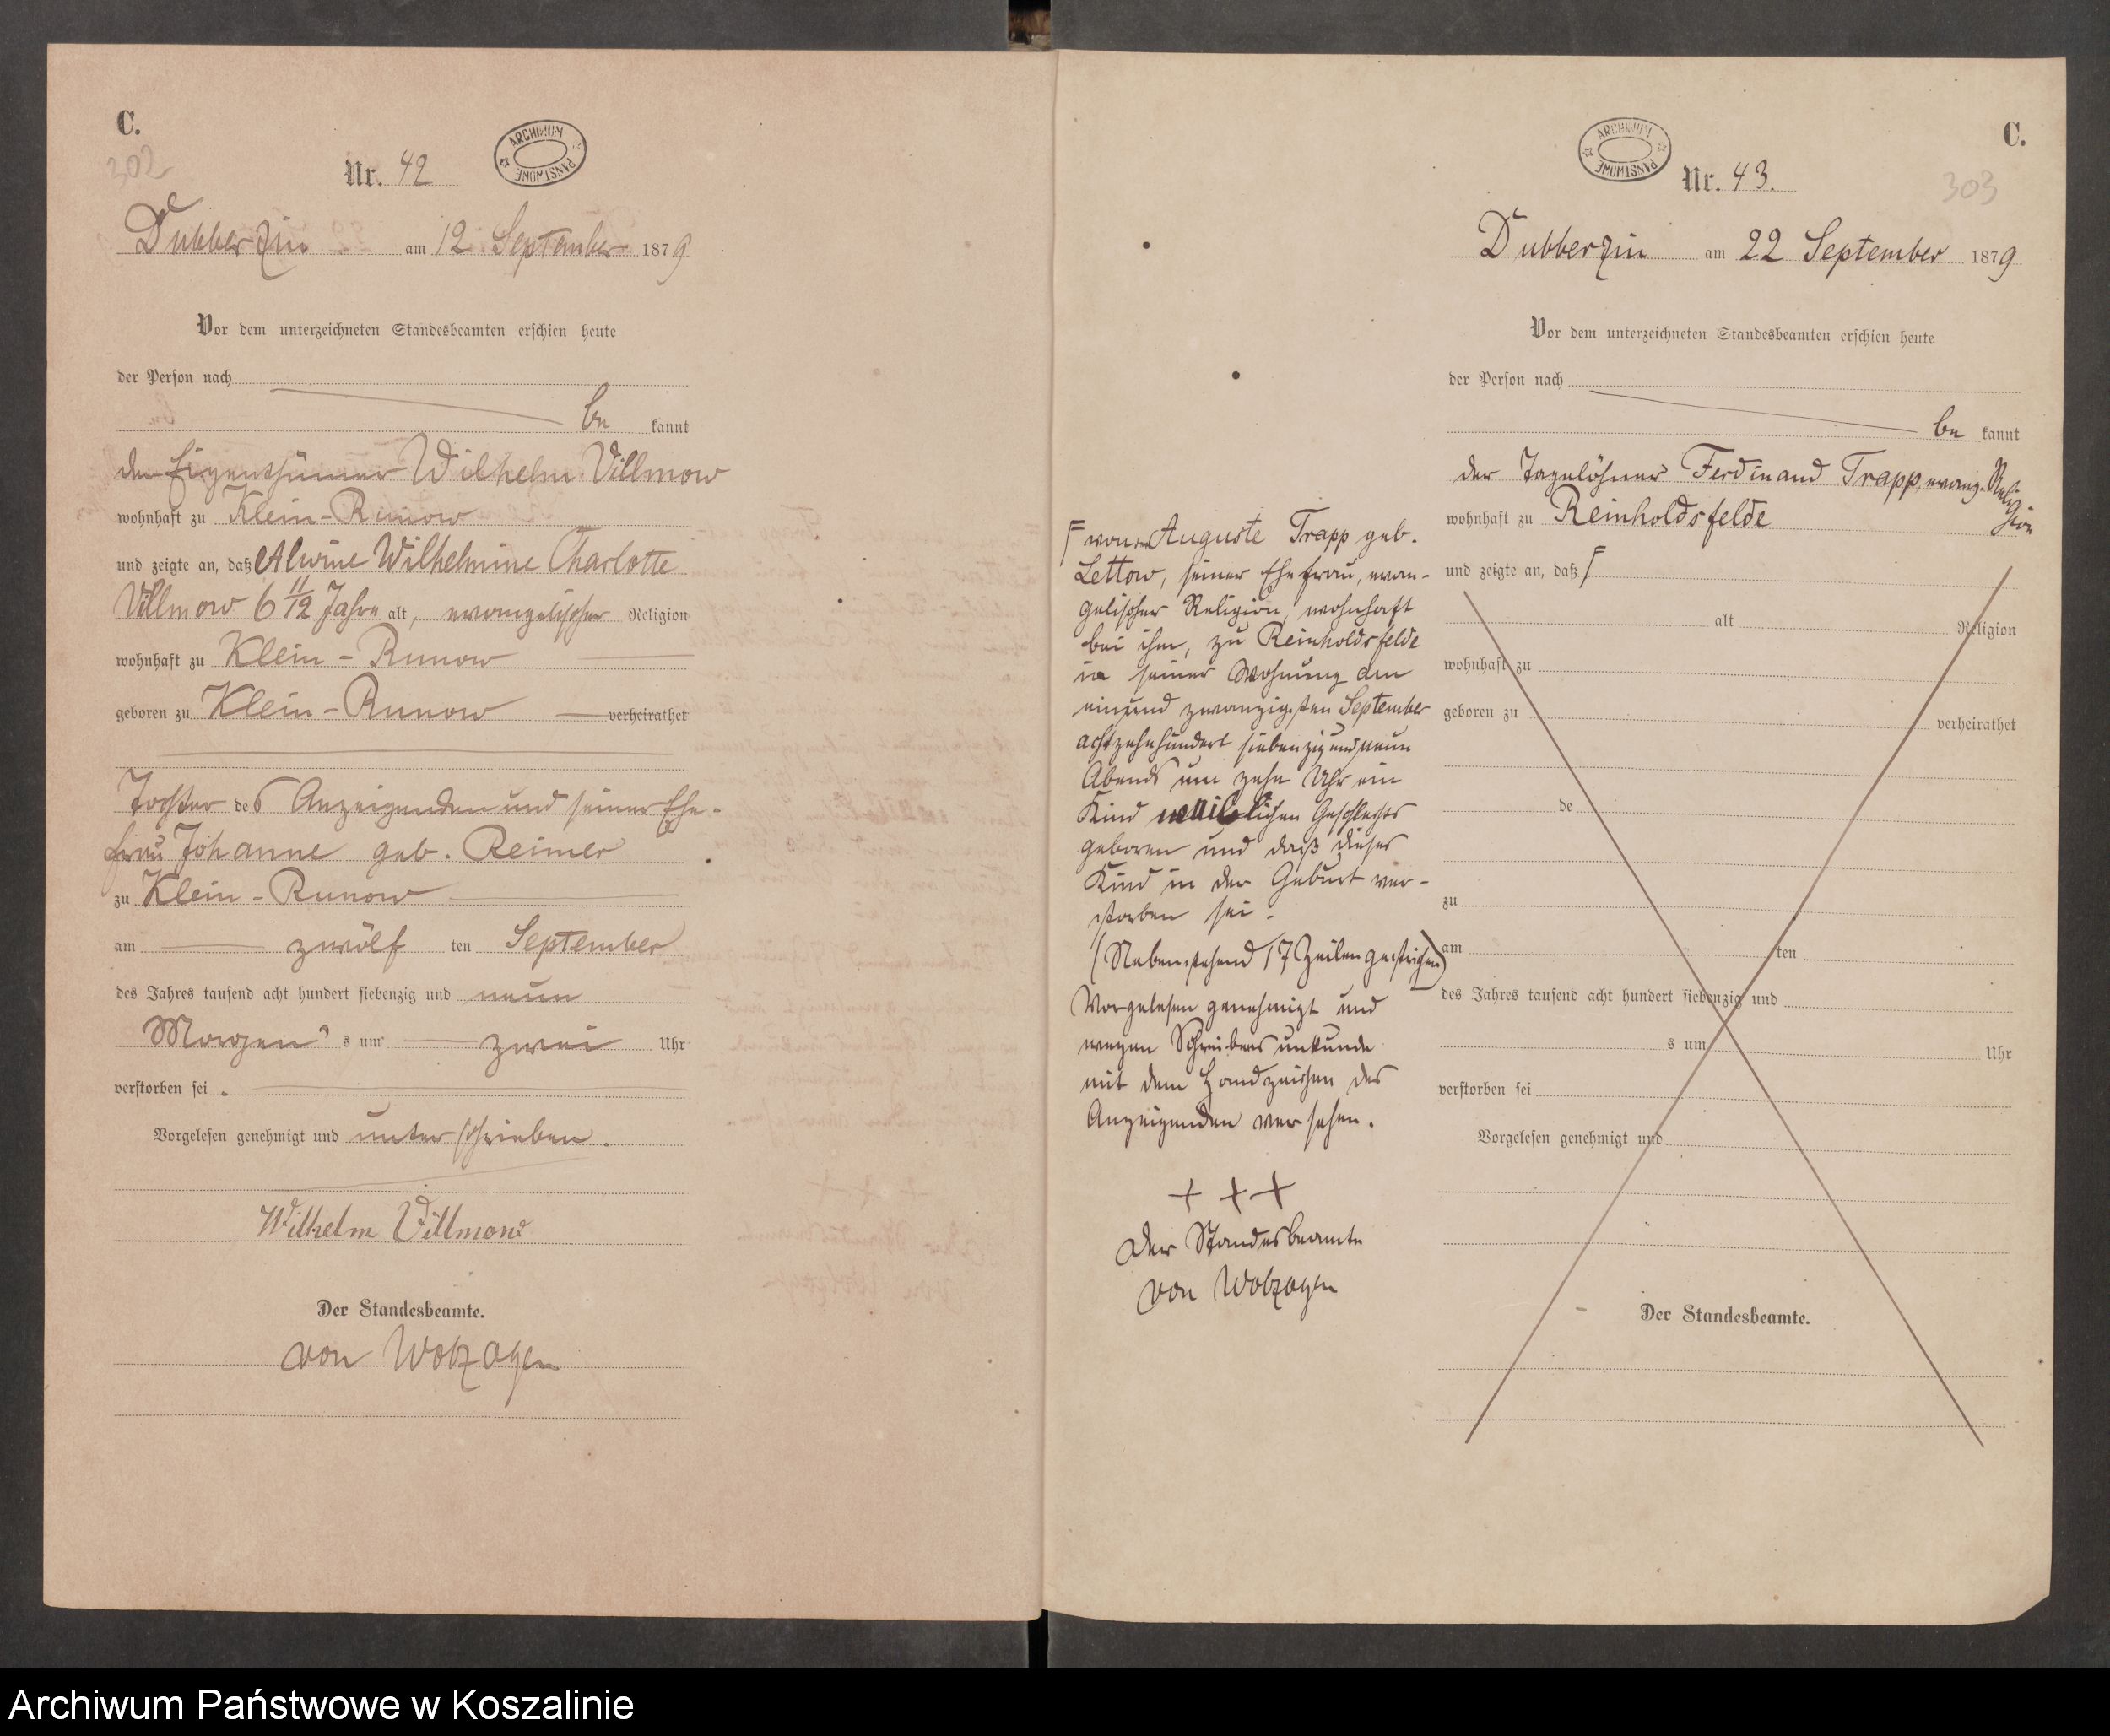 C.
302
Nr. 42
ARCHIWUM PAŃSTWOWE
Dubberzin am 12 September 1879
Vor dem unterzeichneten Standesbeamten erschien heute
der Person nach
be kannt
der Eigenthümer Wilhelm Villmow
wohnhaft zu Klein-Runow
und zeigte an, daß Alwine Wilhelmine Charlotte
Villmow 6 11/12 Jahre alt, evangelischer Religion
wohnhaft zu Klein-Runow
geboren zu Klein-Runow verheirathet
Tochter des Anzeigenden und seiner Ehe-
frau Johanne geb. Reimer
zu Klein-Runow
am zwölf ten September
des Jahres tausend acht hundert siebenzig und neun
Morgen s um zwei Uhr
verstorben sei.
Vorgelesen genehmigt und unterschrieben.
Wilhelm Villmow
Der Standesbeamte.
von Wolzogen
C.
ARCHIWUM PAŃSTWOWE
Nr. 43.
303
Dubberzin am 22 September 1879
Vor dem unterzeichneten Standesbeamten erschien heute
der Person nach
be kannt
der Tagelöhner Ferdinand Trapp, evang. Reli
gion
wohnhaft zu Reinholdsfelde
und zeigte an, daß
alt Religion
wohnhaft zu
geboren zu verheirathet
de
zu
am ten
des Jahres tausend acht hundert siebenzig und
s um Uhr
verstorben sei
Vorgelesen genehmigt und
Der Standesbeamte.
von Auguste Trapp geb.
Lettow, seiner Ehefrau, evan-
gelischer Religion, wohnhaft
bei ihm, zu Reinholdsfelde
in seiner Wohnung am
einund zwanzigsten September
achtzehnhundert siebenzig und neun
Abends um zehn Uhr ein
Kind weiblichen Geschlechts
geboren und daß dieses
Kind in der Geburt ver-
storben sei.
(Nebenstehend 17 Zeilen gestrichen)
Vorgelesen genehmigt und
wegen Schreibens unkunde
mit dem Handzeichen des
Anzeigenden versehen.
+ + +
Der Standesbeamte
von Wolzogen
Archiwum Państwowe w Koszalinie